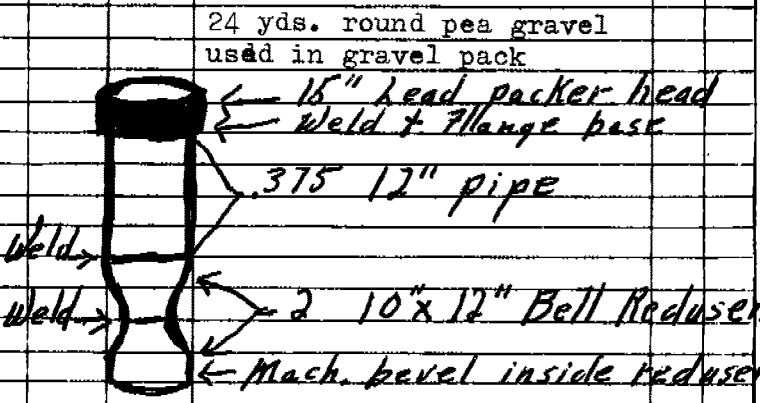 24 yds. round pea gravel
used in gravel pack
15" Lead packer head
Weld & Flange base
.375 12" pipe
Weld
2 10"x 12" Bell Reduser
Weld
Mach. bevel inside reduser